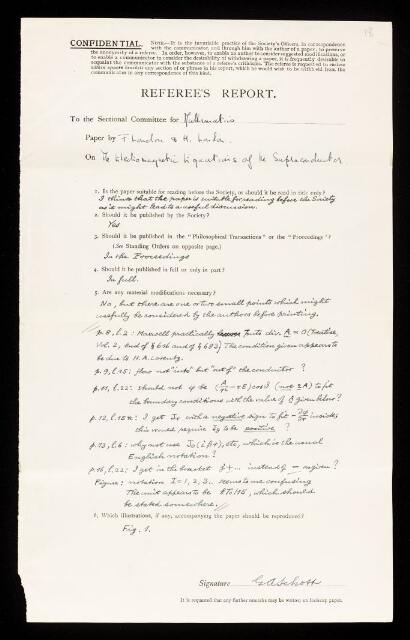 18
CONFIDENTIAL. NOTE.—It is the invariable practice of the Society's Officers, in correspondence
with the communicator, and through him with the author of a paper, to preserve
the anonymity of a referee. In order, however, to enable an author to consider suggested modifications, or
to enable a communicator to consider the desirability of withdrawing a paper, it is frequently desirable to
acquaint the communicator with the substance of a referee's criticisms. The referee is requested to
communicator in any correspondence of this kind.
REFEREE'S REPORT.
To the Sectional Committee for Mathematics
Paper by F London & H. London
On The Electromagnetic Equations of the Supraconductor
1. Is the paper suitable for reading before the Society, or should it be read in title only?
I think that the paper is suitable for reading before the Society
as it might lead to a useful discussion.
2. Should it be published by the Society?
Yes
3. Should it be published in the "Philosophical Transactions" or the "Proceedings"?
(See Standing Orders on opposite page.)
In the Proceedings
4. Should it be published in full or only in part?
In full.
5. Are any material modifications necessary?
No, but there are one or two small points which might
usefully be considered by the authors before printing.
p. 8, l. 2 : Maxwell practically puts div. A = 0 (Treatise,
Vol. 2, end of § 616 and of § 683) The condition given appears to
be due to H. A. Lorentz.
p. 9, l. 15: flow not "into" but "out of" the conductor ?
p. 11, l. 22: should not be cos θ (not ) to fit
the boundary conditions with the value of given below?
p. 12, l. : I get with a negative sign to fit inside;
this would require to be positive ?
p. 13, l. 6: why not use J₀(iβr), etc, which is the usual
English notation?
p. 16, l. 22: I get in the bracket + ... instead of – as given ?
Figure: notation I = 1, 2, 3.. seems to me confusing
The unit appears to be , which should
be stated somewhere.
6. Which illustrations, if any, accompanying the paper should be reproduced?
Fig. 1.
Signature G A Schott
It is requested that any further remarks may be written on foolscap paper.